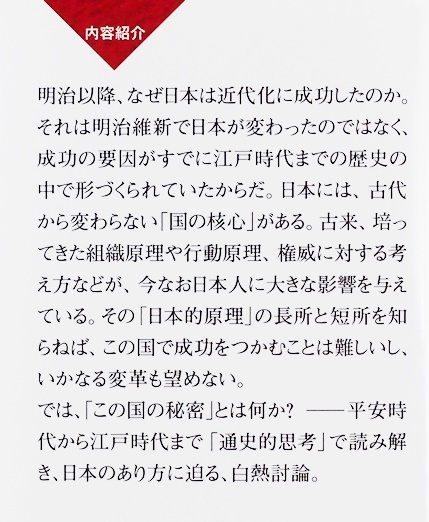 内容紹介
明治以降、なぜ日本は近代化に成功したのか。
それは明治維新で日本が変わったのではなく、
成功の要因がすでに江戸時代までの歴史の
中で形づくられていたからだ。日本には、古代
から変わらない「国の核心」がある。古来、培っ
てきた組織原理や行動原理、権威に対する考
え方などが、今なお日本人に大きな影響を与え
ている。その「日本的原理」の長所と短所を知
らねば、この国で成功をつかむことは難しいし、
いかなる変革も望めない。
では、「この国の秘密」とは何か? ――平安時
代から江戸時代まで「通史的思考」で読み解
き、日本のあり方に迫る、白熱討論。